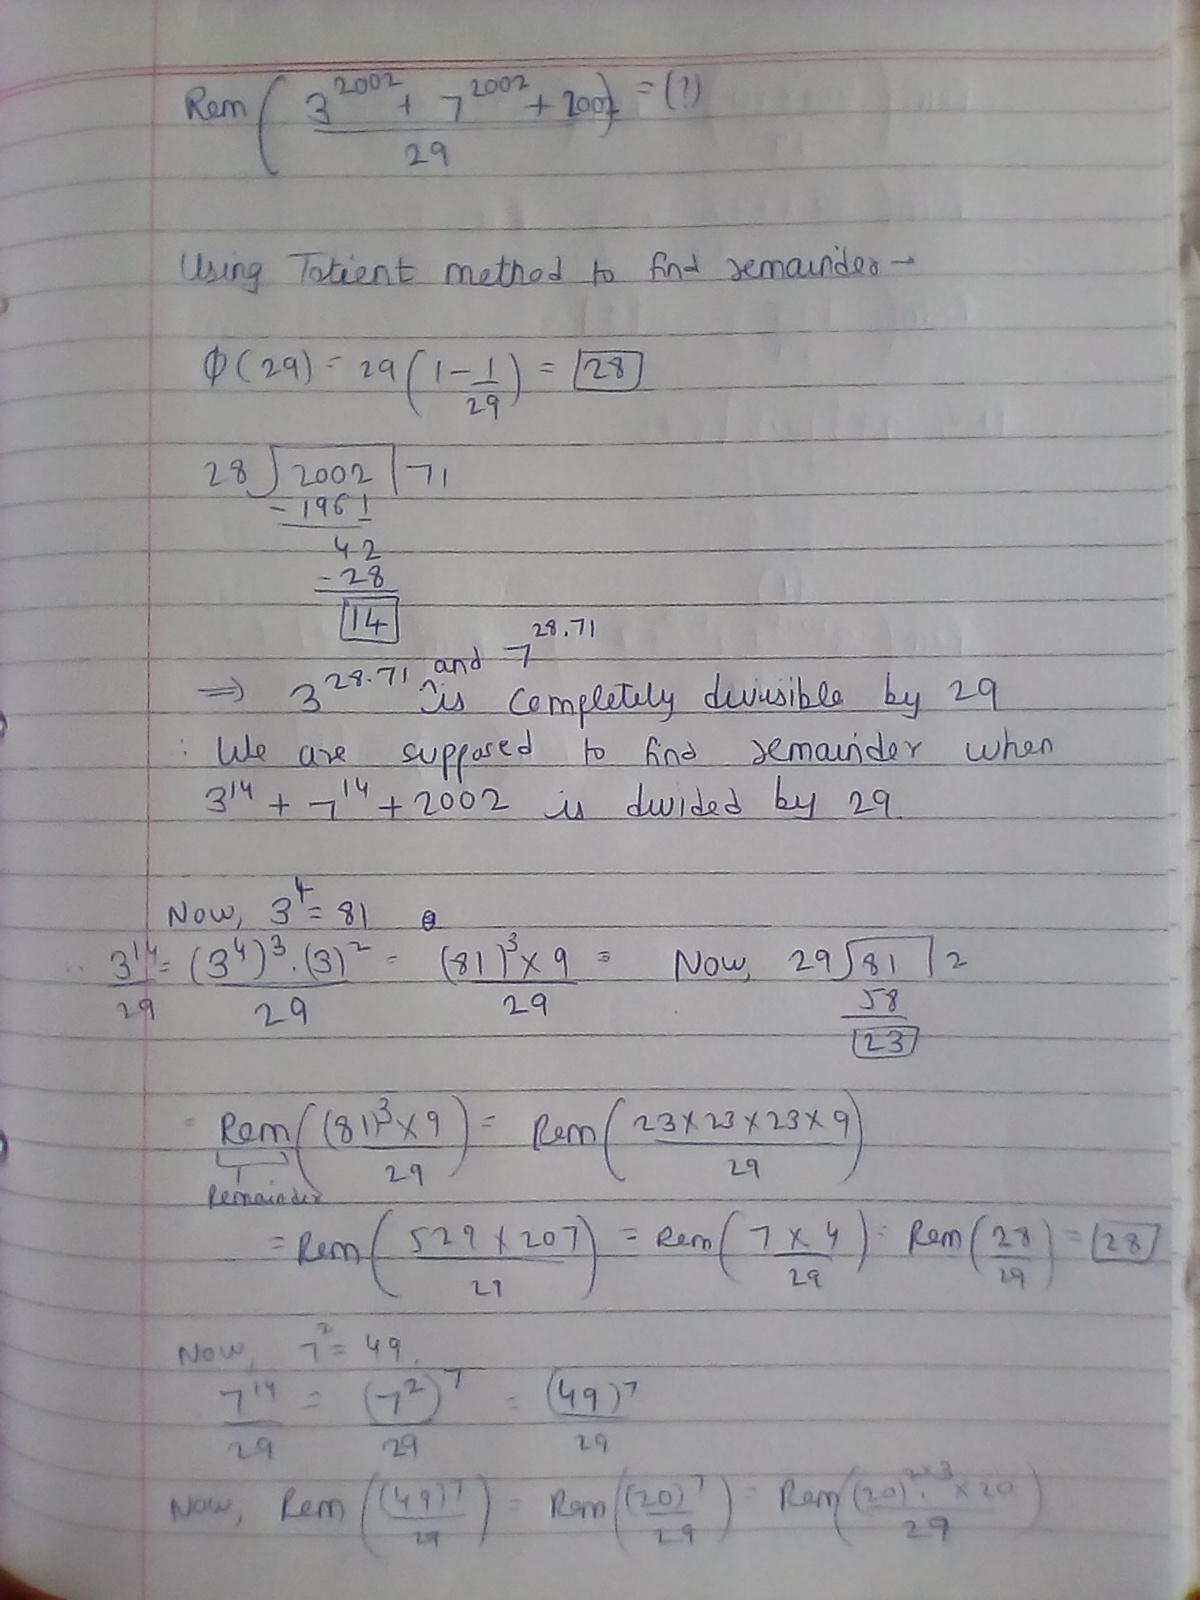 Rem ( (3^2002 + 7^2002 + 2002) / 29 ) = (?)
Using Totient method to find remainder –
Φ(29) = 29 (1 - 1/29) = 28
28 ) 2002 | 71
- 196
42
- 28
14
⇒ 3^28.71 and 7^28.71 is completely divisible by 29
: We are supposed to find remainder when
3^14 + 7^14 + 2002 is divided by 29.
Now, 3^4 = 81
∴ 3^14/29 = (3^4)^3 . (3)^2 / 29 = (81)^3 × 9 / 29 = Now, 29 ) 81 | 2
58
23
= Rem ( (81)^3 × 9 / 29 ) = Rem ( 23 × 23 × 23 × 9 / 29 )
Remainder
= Rem ( 529 × 207 / 29 ) = Rem ( 7 × 4 / 29 ) = Rem ( 28 / 29 ) = 28
Now, 7^2 = 49.
7^14 / 29 = (7^2)^7 / 29 = (49)^7 / 29
Now, Rem ( (49)^7 / 29 ) = Rem ( (20)^7 / 29 ) = Rem ( (20)^2×3 × 20 / 29 )